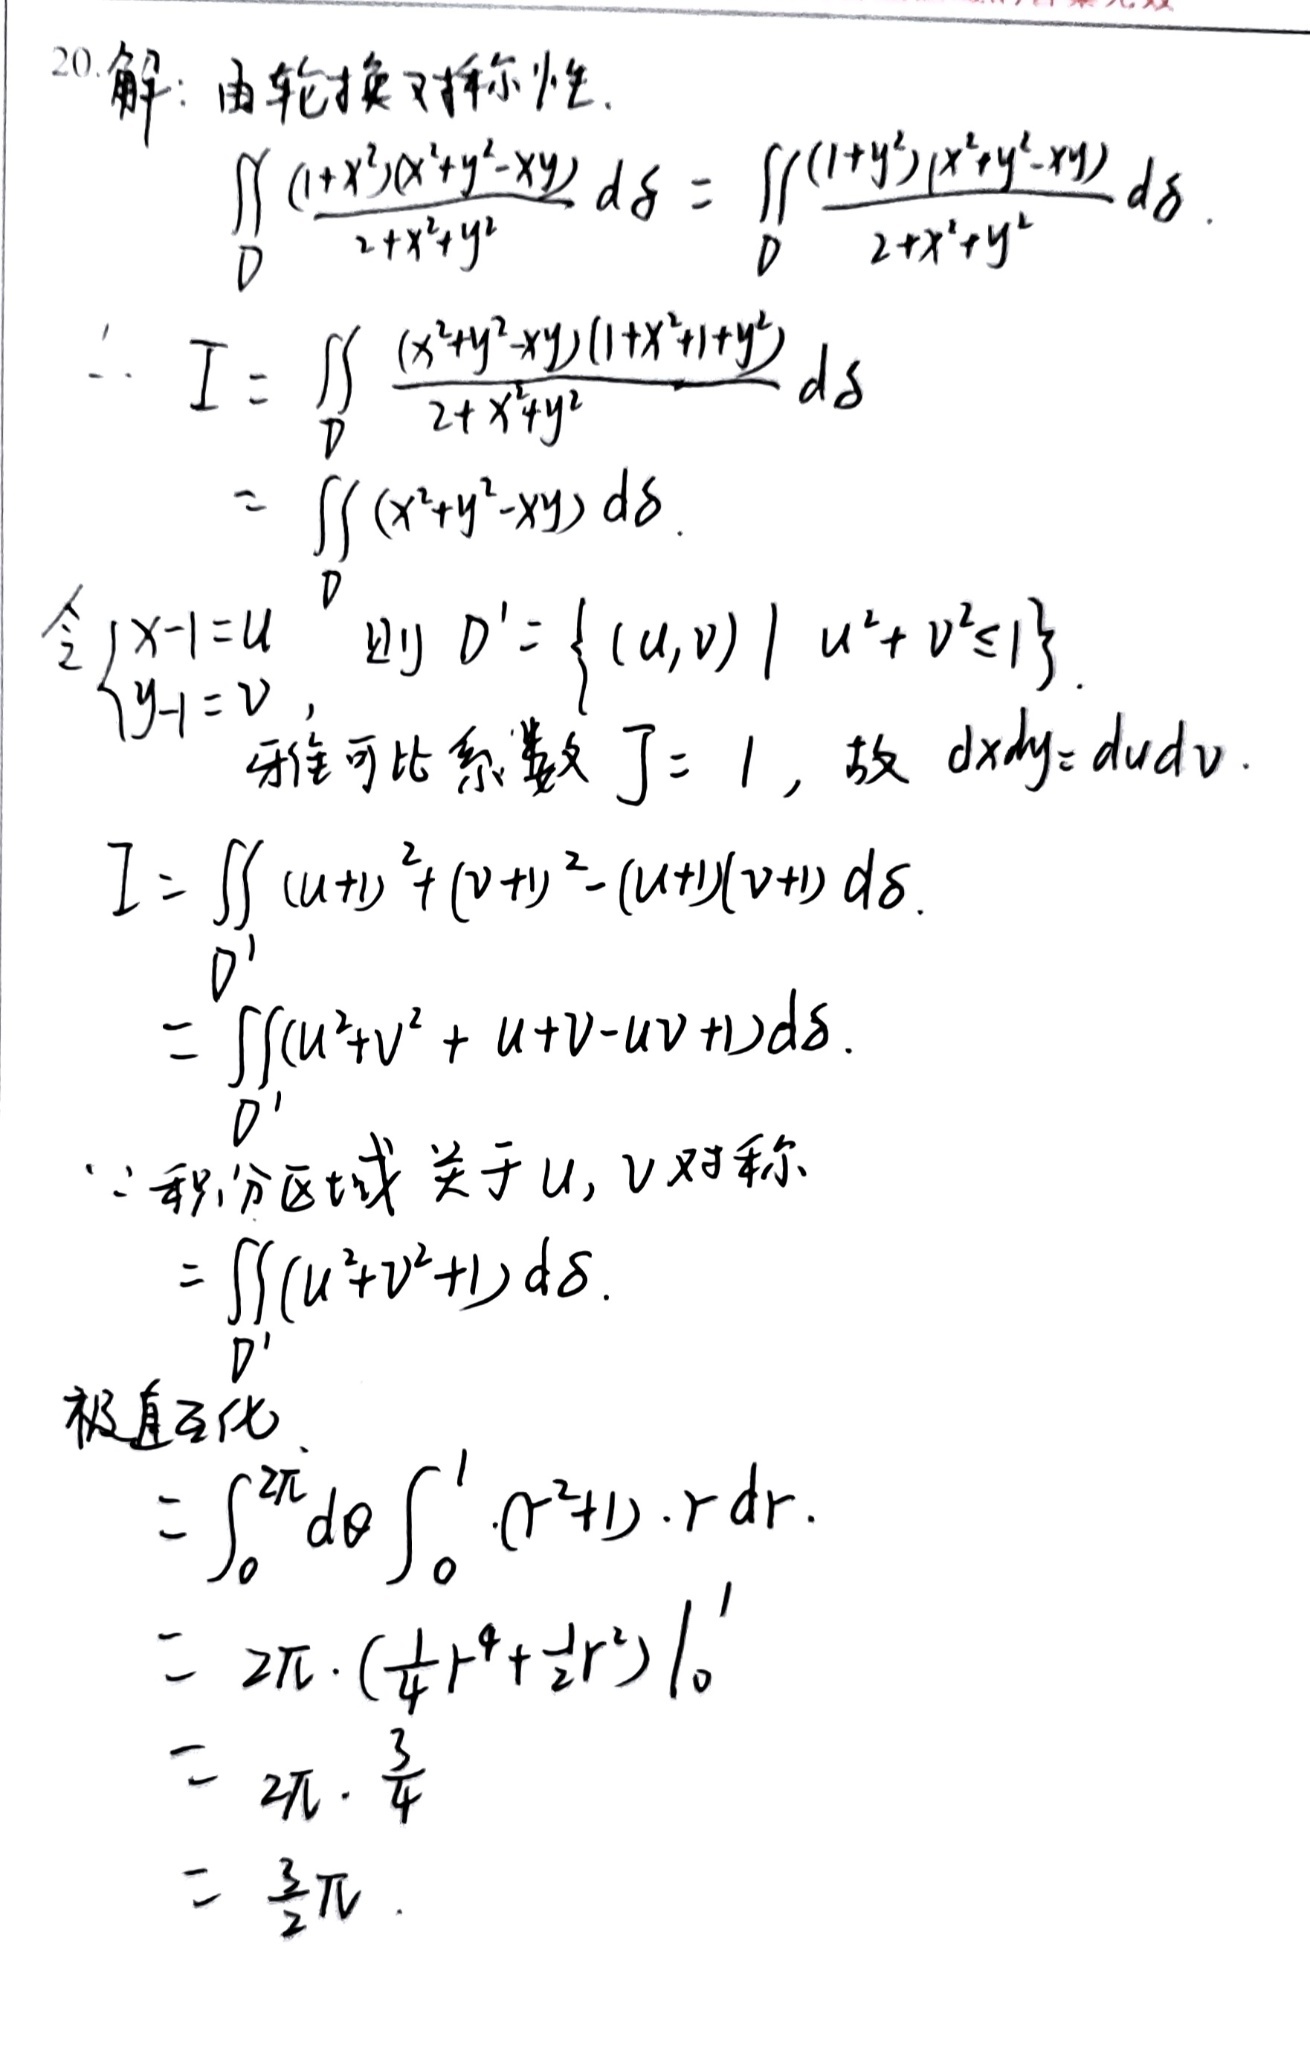 20.解：由轮换对称性.
∬_D (1+x²)(x²+y²-xy)/(2+x²+y²) dδ = ∬_D (1+y²)(x²+y²-xy)/(2+x²+y²) dδ.
∴ I = ∬_D (x²+y²-xy)(1+x²+1+y²)/(2+x²+y²) dδ
= ∬_D (x²+y²-xy) dδ.
令 { x-1=u
y-1=v , 则 D'={(u,v) | u²+v²≤1}.
雅可比系数 J=1, 故 dxdy=dudv.
I = ∬_D' (u+1)²+(v+1)²-(u+1)(v+1) dδ.
= ∬_D' (u²+v²+u+v-uv+1) dδ.
∵ 积分区域关于u, v对称
= ∬_D' (u²+v²+1) dδ.
极直互化
= ∫₀^2π dθ ∫₀^1 (r²+1)·r dr.
= 2π·(1/4 r⁴+1/2 r²)|₀^1
= 2π·3/4
= 3/2 π.